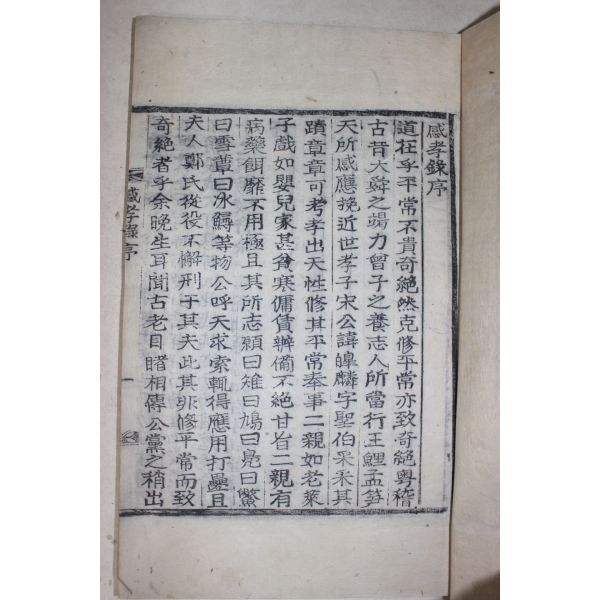 感孝錄序
道在乎平常不貴奇絕然克修平常亦致奇絕粤稽
古昔大舜之竭力曾子之養志人所當行王鯉孟笋
天所感應挽近世孝子宋公諱皥麟字聖伯采采其
蹟章章可考孝出天性修其平常奉事二親如老萊
子戲如嬰兒家甚貧寒傭賃辦備不絕甘旨二親有
病藥餌靡不用極且其所志願曰雉曰鳩曰鳧曰鱉
曰雪蕈曰氷鱘等物公呼天求索輒得應用打疊且
夫人鄭氏從役不懈刑于其夫此其非修平常而致
奇絕者乎余晚生耳聞古老目睹相傳公黨之稍出
感孝錄序
一